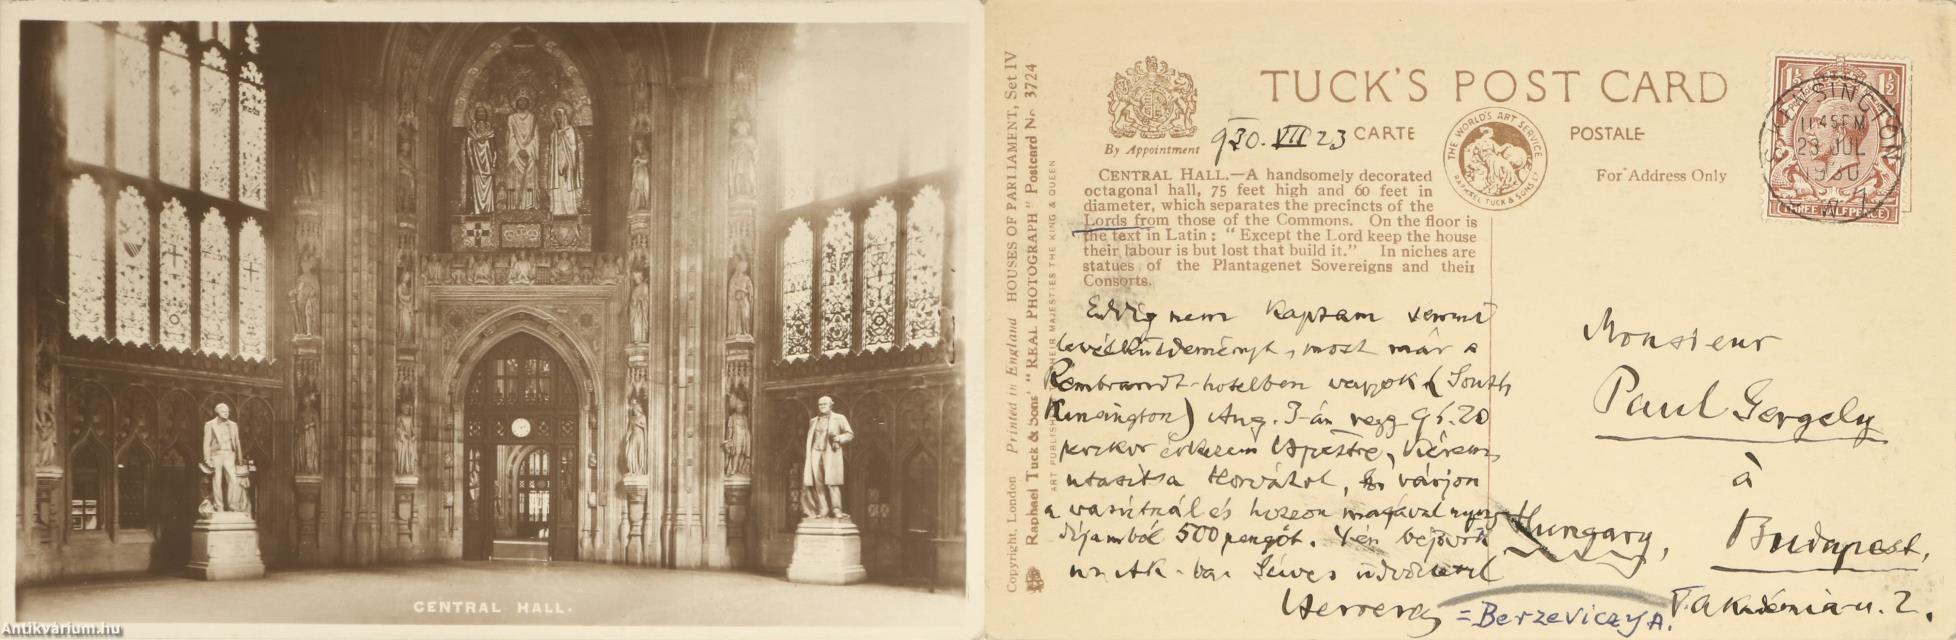 CENTRAL HALL.
Antikvárium.hu
TUCK'S POST CARD
CARTE POSTALE
By Appointment
930. VII 23
THE WORLD'S ART SERVICE
RAPHAEL TUCK & SONS LD
For Address Only
KENSINGTON
11.45 PM
23 JUL
1930
THREE HALFPENCE
CENTRAL HALL.—A handsomely decorated
octagonal hall, 75 feet high and 60 feet in
diameter, which separates the precincts of the
Lords from those of the Commons. On the floor is
the text in Latin: "Except the Lord keep the house
their labour is but lost that build it." In niches are
statues of the Plantagenet Sovereigns and their
Consorts.
Copyright, London Printed in England HOUSES OF PARLIAMENT, Set IV
Raphael Tuck & Sons' "REAL PHOTOGRAPH" Postcard No. 3724
ART PUBLISHERS TO THEIR MAJESTIES THE KING & QUEEN
Eddig nem kaptam semmi
levélküldeményt, most már a
Rembrandt-hotelben vagyok (South
Kensington) Aug. 3-án
érkezem
utasítsa Horváthot, várjon
a vasútnál és hozzon magával
díjamból 500 pengőt.
Szíves üdvözlettel
= Berzeviczy A.
Monsieur
Paul Gergely
à
Budapest,
Hungary,
V. Akadémia-u. 2.